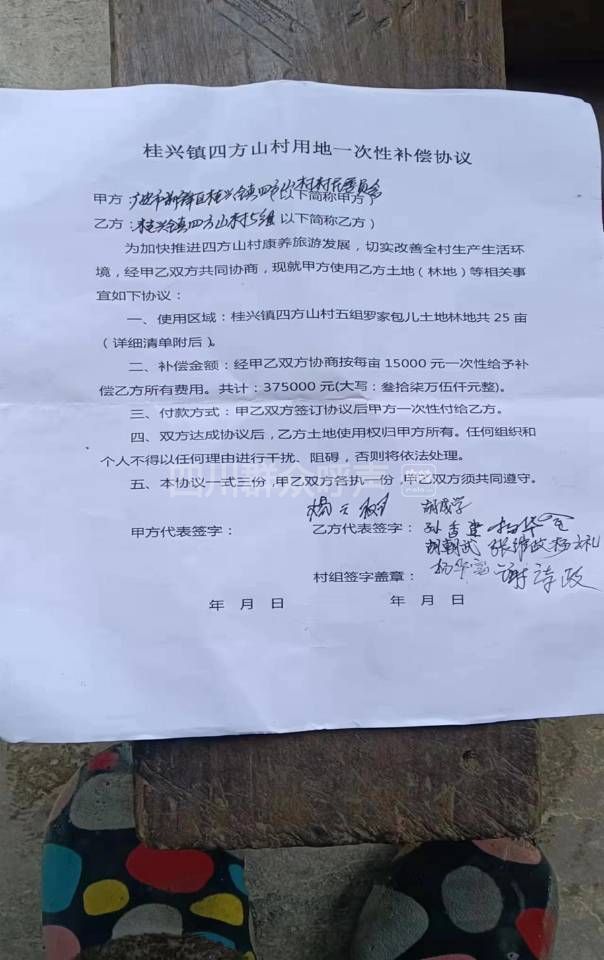 桂兴镇四方山村用地一次性补偿协议
甲方：广安市前锋区桂兴镇四方山村村民委员会（以下简称甲方）
乙方：桂兴镇四方山村5组（以下简称乙方）
为加快推进四方山村康养旅游发展，切实改善全村生产生活环
境，经甲乙双方共同协商，现就甲方使用乙方土地（林地）等相关事
宜如下协议：
一、使用区域：桂兴镇四方山村五组罗家包儿土地林地共25亩
（详细清单附后）。
二、补偿金额：经甲乙双方协商按每亩15000元一次性给予补
偿乙方所有费用。共计：375000元(大写：叁拾柒万伍仟元整)。
三、付款方式：甲乙双方签订协议后甲方一次性付给乙方。
四、双方达成协议后，乙方土地使用权归甲方所有。任何组织和
个人不得以任何理由进行干扰、阻碍，否则将依法处理。
四川群众呼声
五、本协议一式三份，甲乙双方各执一份，甲乙双方须共同遵守。
甲方代表签字：
乙方代表签字：
胡朝武 张维政
村组签字盖章：
年 月 日 年 月 日